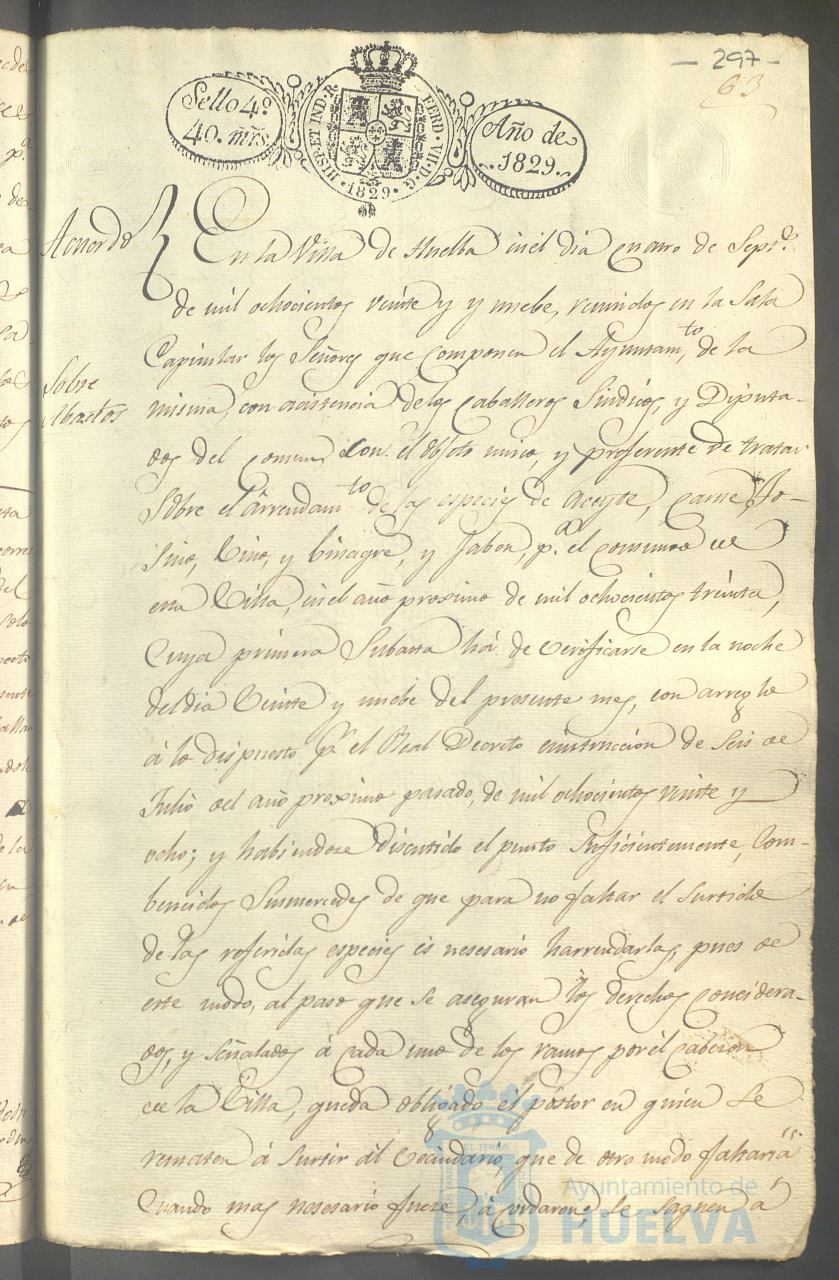 - 297 -
63
Sello 4º
40. mrs.
HISP. ET IND. R. FERD. VII. D. G. 1829.
Año de
1829.
Acuerdo
En la Villa de Huelba in el dia cuatro de Sepre.
de mil ochocientos veinte y y nuebe, reunidos en la Sala
Capitular los Señores que componen el Ayuntamto. de la
Sobre
Abastos
misma, con acistencia de los Caballeros Sindicos, y Diputa-
dos del comun, con el objeto unico, y preferente de tratar
Sobre el Arrendamto. de las especies de Aceyte, carne, To-
sino, Vino, y binagre, y Jabon, pa. el consumo de
esta Villa, in el año proximo de mil ochocientos treinta,
Cuya primera Subasta há de verificarse en la noche
del dia Veinte y nuebe del presente mes, con arreglo
á lo dispuesto pr. el Real Decreto einstruccion de Seis de
Julio del año proximo pasado, de mil ochocientos veinte y
ocho; y habiendose discutido el punto suficientemente, Com-
bencidos Susmercedes de que para no faltar el surtido
de las referidas especies es nesesario harrendarlas, pues de
este modo, al paso que se aseguran los derechos considera-
dos, y señalados á cada uno de los ramos por él cabezon
de la Villa, queda obligado el póstor en quien se
rematen á surtir al Vecindario, que de otro modo faltaria
Cuando mas nesesario fuese, acordaron, se saquen á
Ayuntamiento de
HUELVA